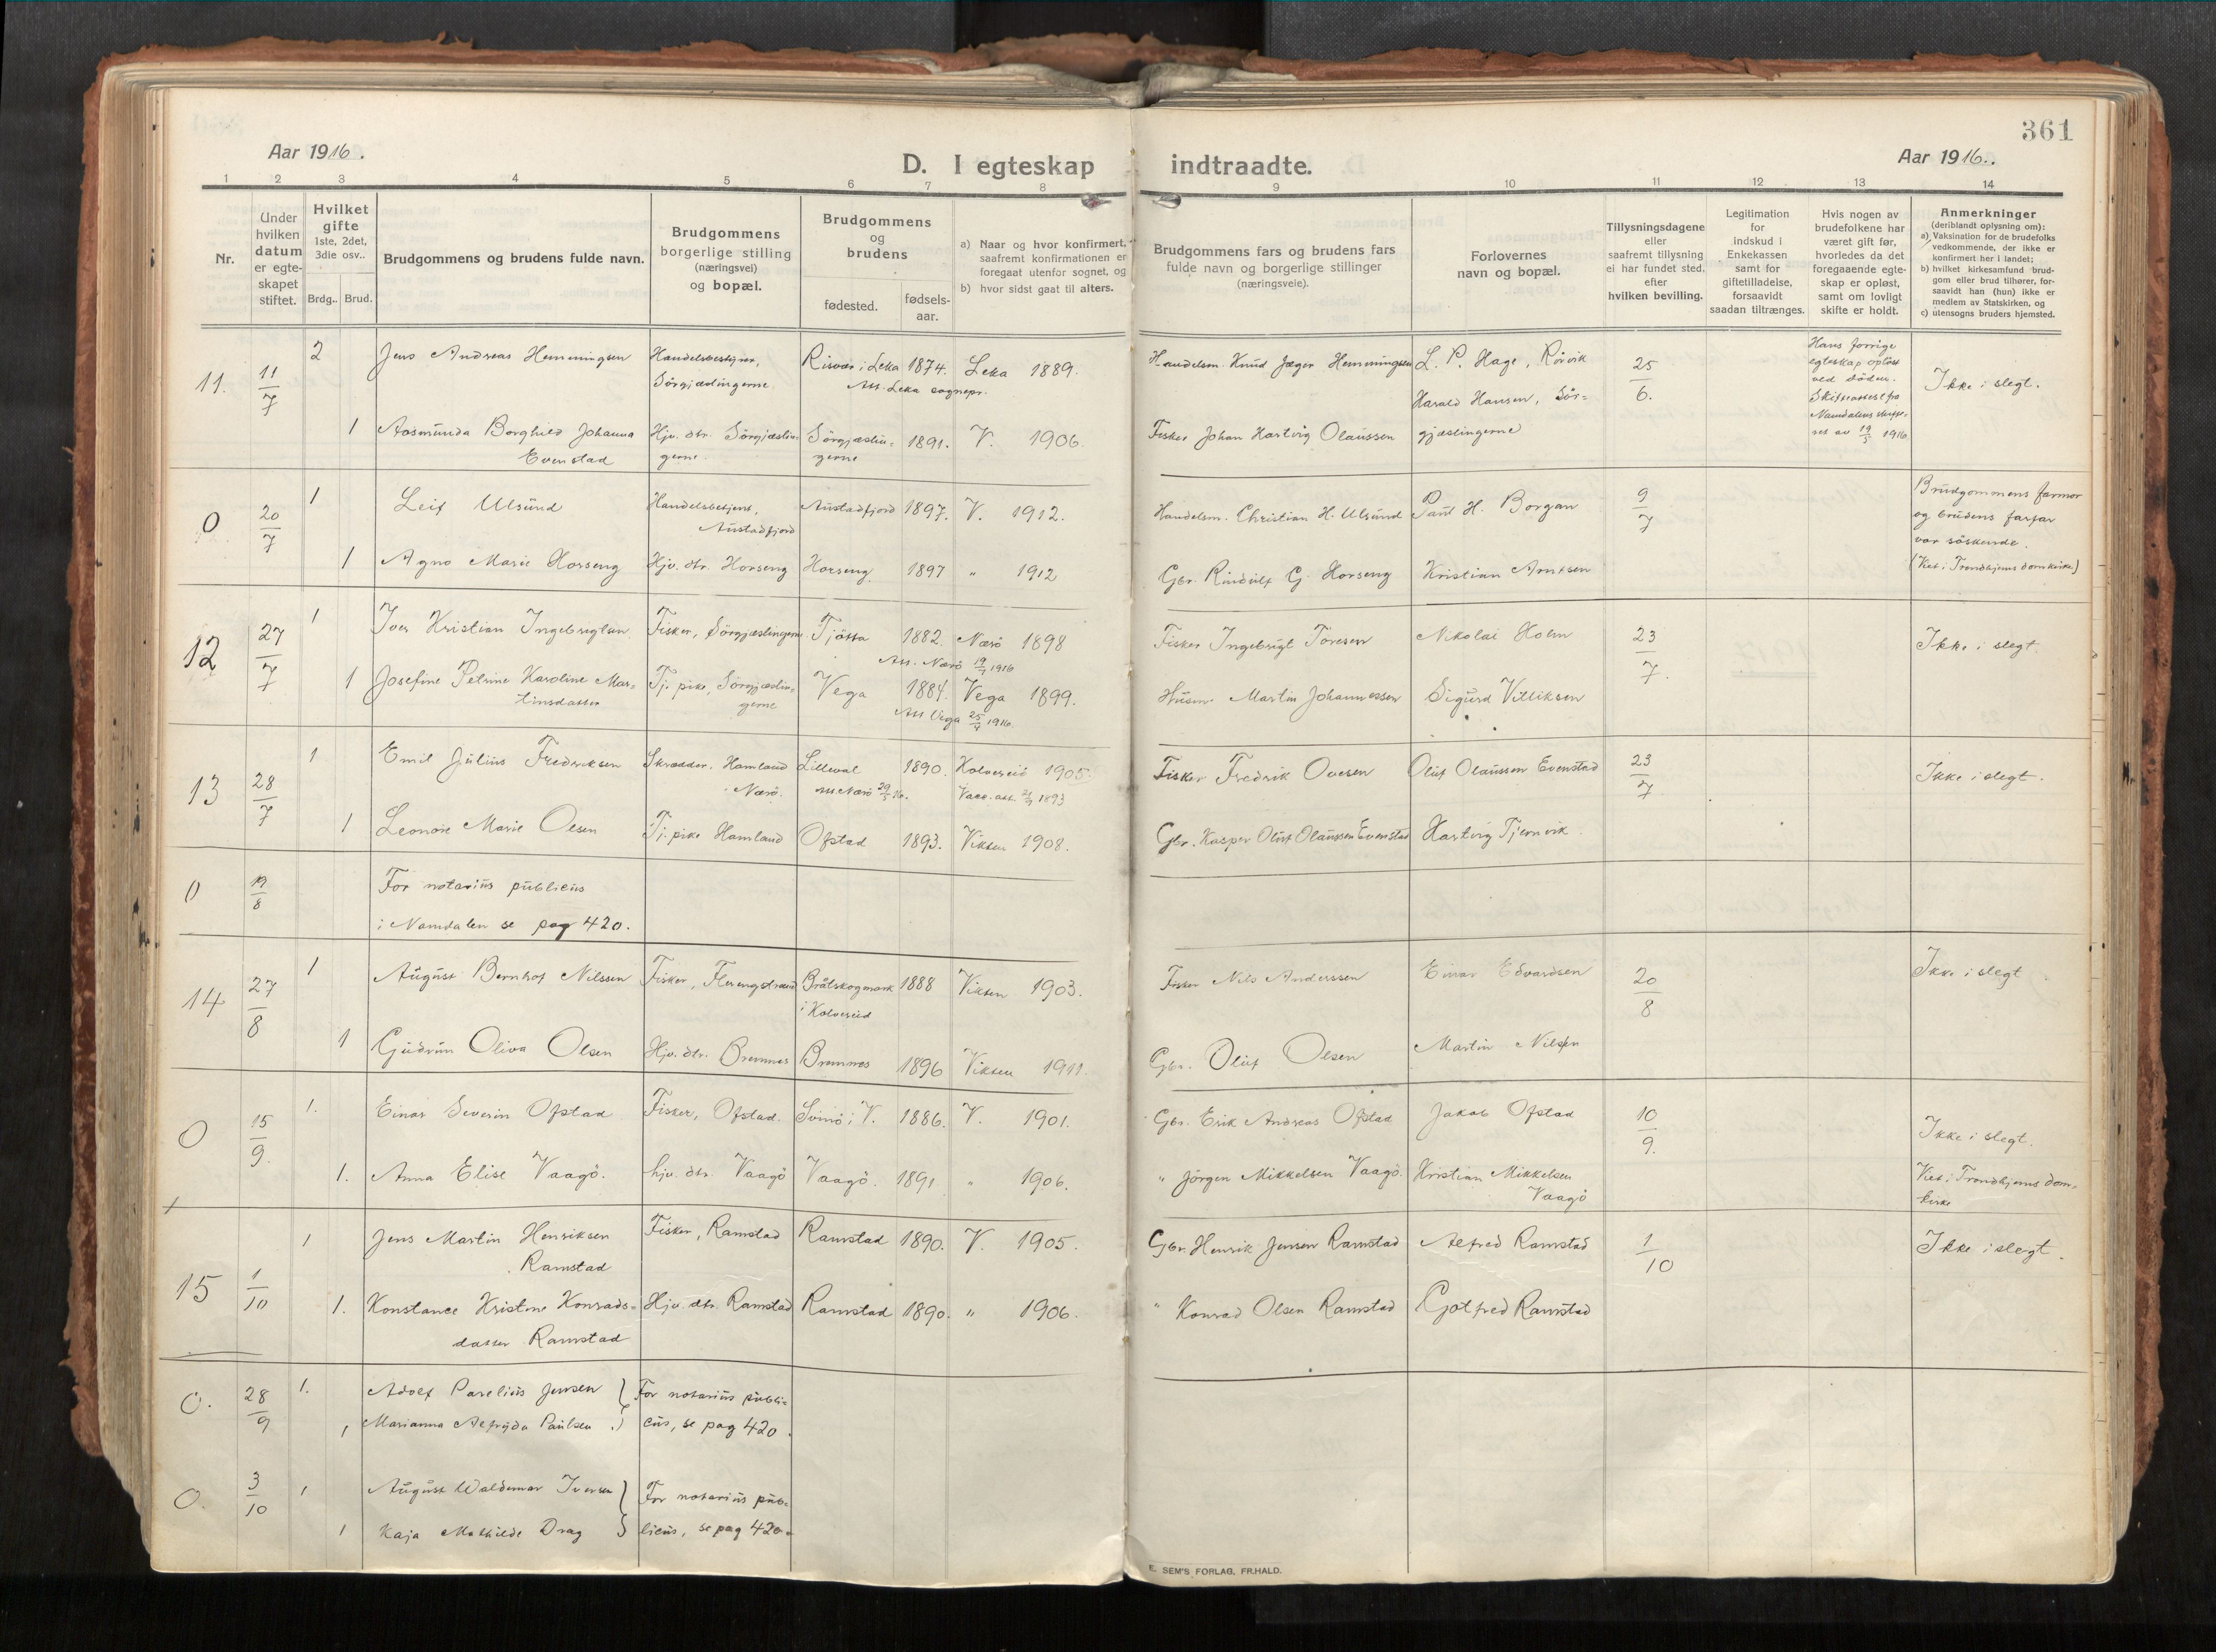 361
Aar 1916.
D. I egteskap indtraadte.
Aar 1916.
1 2 3 4 5 6 7 8 9 10 11 12 13 14
Nr.
Under
hvilken
datum
er egte-
skapet
stiftet.
Hvilket
gifte
1ste, 2det,
3die osv..
Brdg.. Brud.
Brudgommens og brudens fulde navn.
Brudgommens
borgerlige stilling
(næringsvei)
og bopæl.
Brudgommens
og
brudens
fødested.
fødsels-
aar.
a) Naar og hvor konfirmert,
saafremt konfirmationen er
foregaat utenfor sognet, og
b) hvor sidst gaat til alters.
Brudgommens fars og brudens fars
fulde navn og borgerlige stillinger
(næringsveie).
Forlovernes
navn og bopæl.
Tillysningsdagene
eller
saafremt tillysning
ei har fundet sted,
efter
hvilken bevilling.
Legitimation
for
indskud i
Enkekassen
samt for
giftetilladelse,
forsaavidt
saadan tiltrænges.
Hvis nogen av
brudefolkene har
været gift før,
hvorledes da det
foregaaende egte-
skap er opløst,
samt om lovligt
skifte er holdt.
Anmerkninger
(deriblandt oplysning om):
a) Vaksination for de brudefolks
vedkommende, der ikke er
konfirmert her i landet;
b) hvilket kirkesamfund brud-
gom eller brud tilhører, for-
saavidt han (hun) ikke er
medlem av Statskirken, og
c) utensogns bruders hjemsted.
11. 11/7 2 Jens Andreas Hemmingsen Handelsbestyrer, Risvær i Leka 1874. Leka 1889. Handelsm. Knud Jæger Hemmingsen L. P. Hage, Rörvik 25/6.
Sörgjæslingerne Att. Leka sognepr. Harald Hansen, Sör-
Hans forrige
egteskap opløst
ved döden.
Skifteattest fra
Namdalens skifte-
ret av 19/5 1916.
Ikke i slegt.
1 Aasmunda Borghild Johanna Hjv. dtr. Sörgjæslin- Sörgjæslin- 1891. V. 1906. Fisker Johan Hartvig Olaussen gjæslingerne
Evenstad gerne gerne
0 20/7 1 Leif Ulsund Handelsbetjent, Austadfjord 1897. V. 1912. Handelsm. Christian H. Ulsund Paul H. Borgan 9/7
Austadfjord
Brudgommens farmor
og brudens farfar
var söskende.
(Viet i Trondhjems domkirke)
1 Agno Marie Horseng Hjv. dtr. Horseng Horseng 1897 " 1912 Gbr. Rindulf G. Horseng Kristian Arntsen
12 27/7 1 Iver Kristian Ingebrigtsen Fisker, Sörgjæslingerne Tjötta 1882. Nærö 1898 Fisker Ingebrigt Toresen Nikolai Holm 23/7. Ikke i slegt.
Att. Nærö 19/7 1916
1 Josefine Petrine Karoline Mar- Tj. pike, Sörgjæslin- Vega 1884. Vega 1899. Husm. Martin Johannessen Sigurd Villiksen
tinsdatter gerne Att Vega 25/4 1916.
13 28/7 1 Emil Julius Frederiksen Skrædder, Hamland Lilleval 1890. Kolvereid 1905. Fisker Fredrik Ovesen Oluf Olaussen Evenstad 23/7 Ikke i slegt.
i Nærö. Att. Nærö 29/5 16. Vacc. att. 21/9 1893
1 Leonore Marie Olsen Tj. pike Hamland Ofstad 1893. Vikten 1908. Gbr. Kasper Oluf Olaussen Evenstad Hartvig Tjernvik
0 19/8 For notarius publicus
i Namdalen se pag 420.
14 27/8 1 August Bernhof Nilssen Fisker, Flerengstrand Bråtskogmark 1888 Vikten 1903. Fisker Nils Anderssen Einar Edvardsen 20/8 Ikke i slegt
i Kolvereid
1 Gudrun Oliva Olsen Hjv. dtr. Bremnes Bremnes 1896 Vikten 1911. Gbr. Oluf Olsen Martin Nilsen
0 15/9. 1. Einar Severin Ofstad Fisker, Ofstad. Svinö i V. 1886. V. 1901. Gbr. Erik Andreas Ofstad Jakob Ofstad 10/9. Ikke i slegt.
1. Anna Elise Vaagö. hjv. dtr. Vaagö Vaagö. 1891 " 1906. " Jörgen Mikkelsen Vaagö. Kristian Mikkelsen
Vaagö
Viet i Trondhjems dom-
kirke
15 1/10 1 Jens Martin Henriksen Fisker, Ramstad Ramstad 1890. V. 1905. Gbr. Henrik Jensen Ramstad Alfred Ramstad 1/10 Ikke i slegt.
Ramstad
1. Konstance Kristine Konrads- Hjv. dtr. Ramstad Ramstad 1890. " 1906. " Konrad Olsen Ramstad Gotfred Ramstad
datter Ramstad
0. 28/9 1. Adolf Parelius Jensen } For notarius publi-
1 Marianna Alfryda Paulsen cus, se pag 420.
0. 3/10 1 August Waldemar Iversen } For notarius pub-
1 Kaja Mathilde Drag licus, se pag 420.
E. SEM'S FORLAG, FR.HALD.